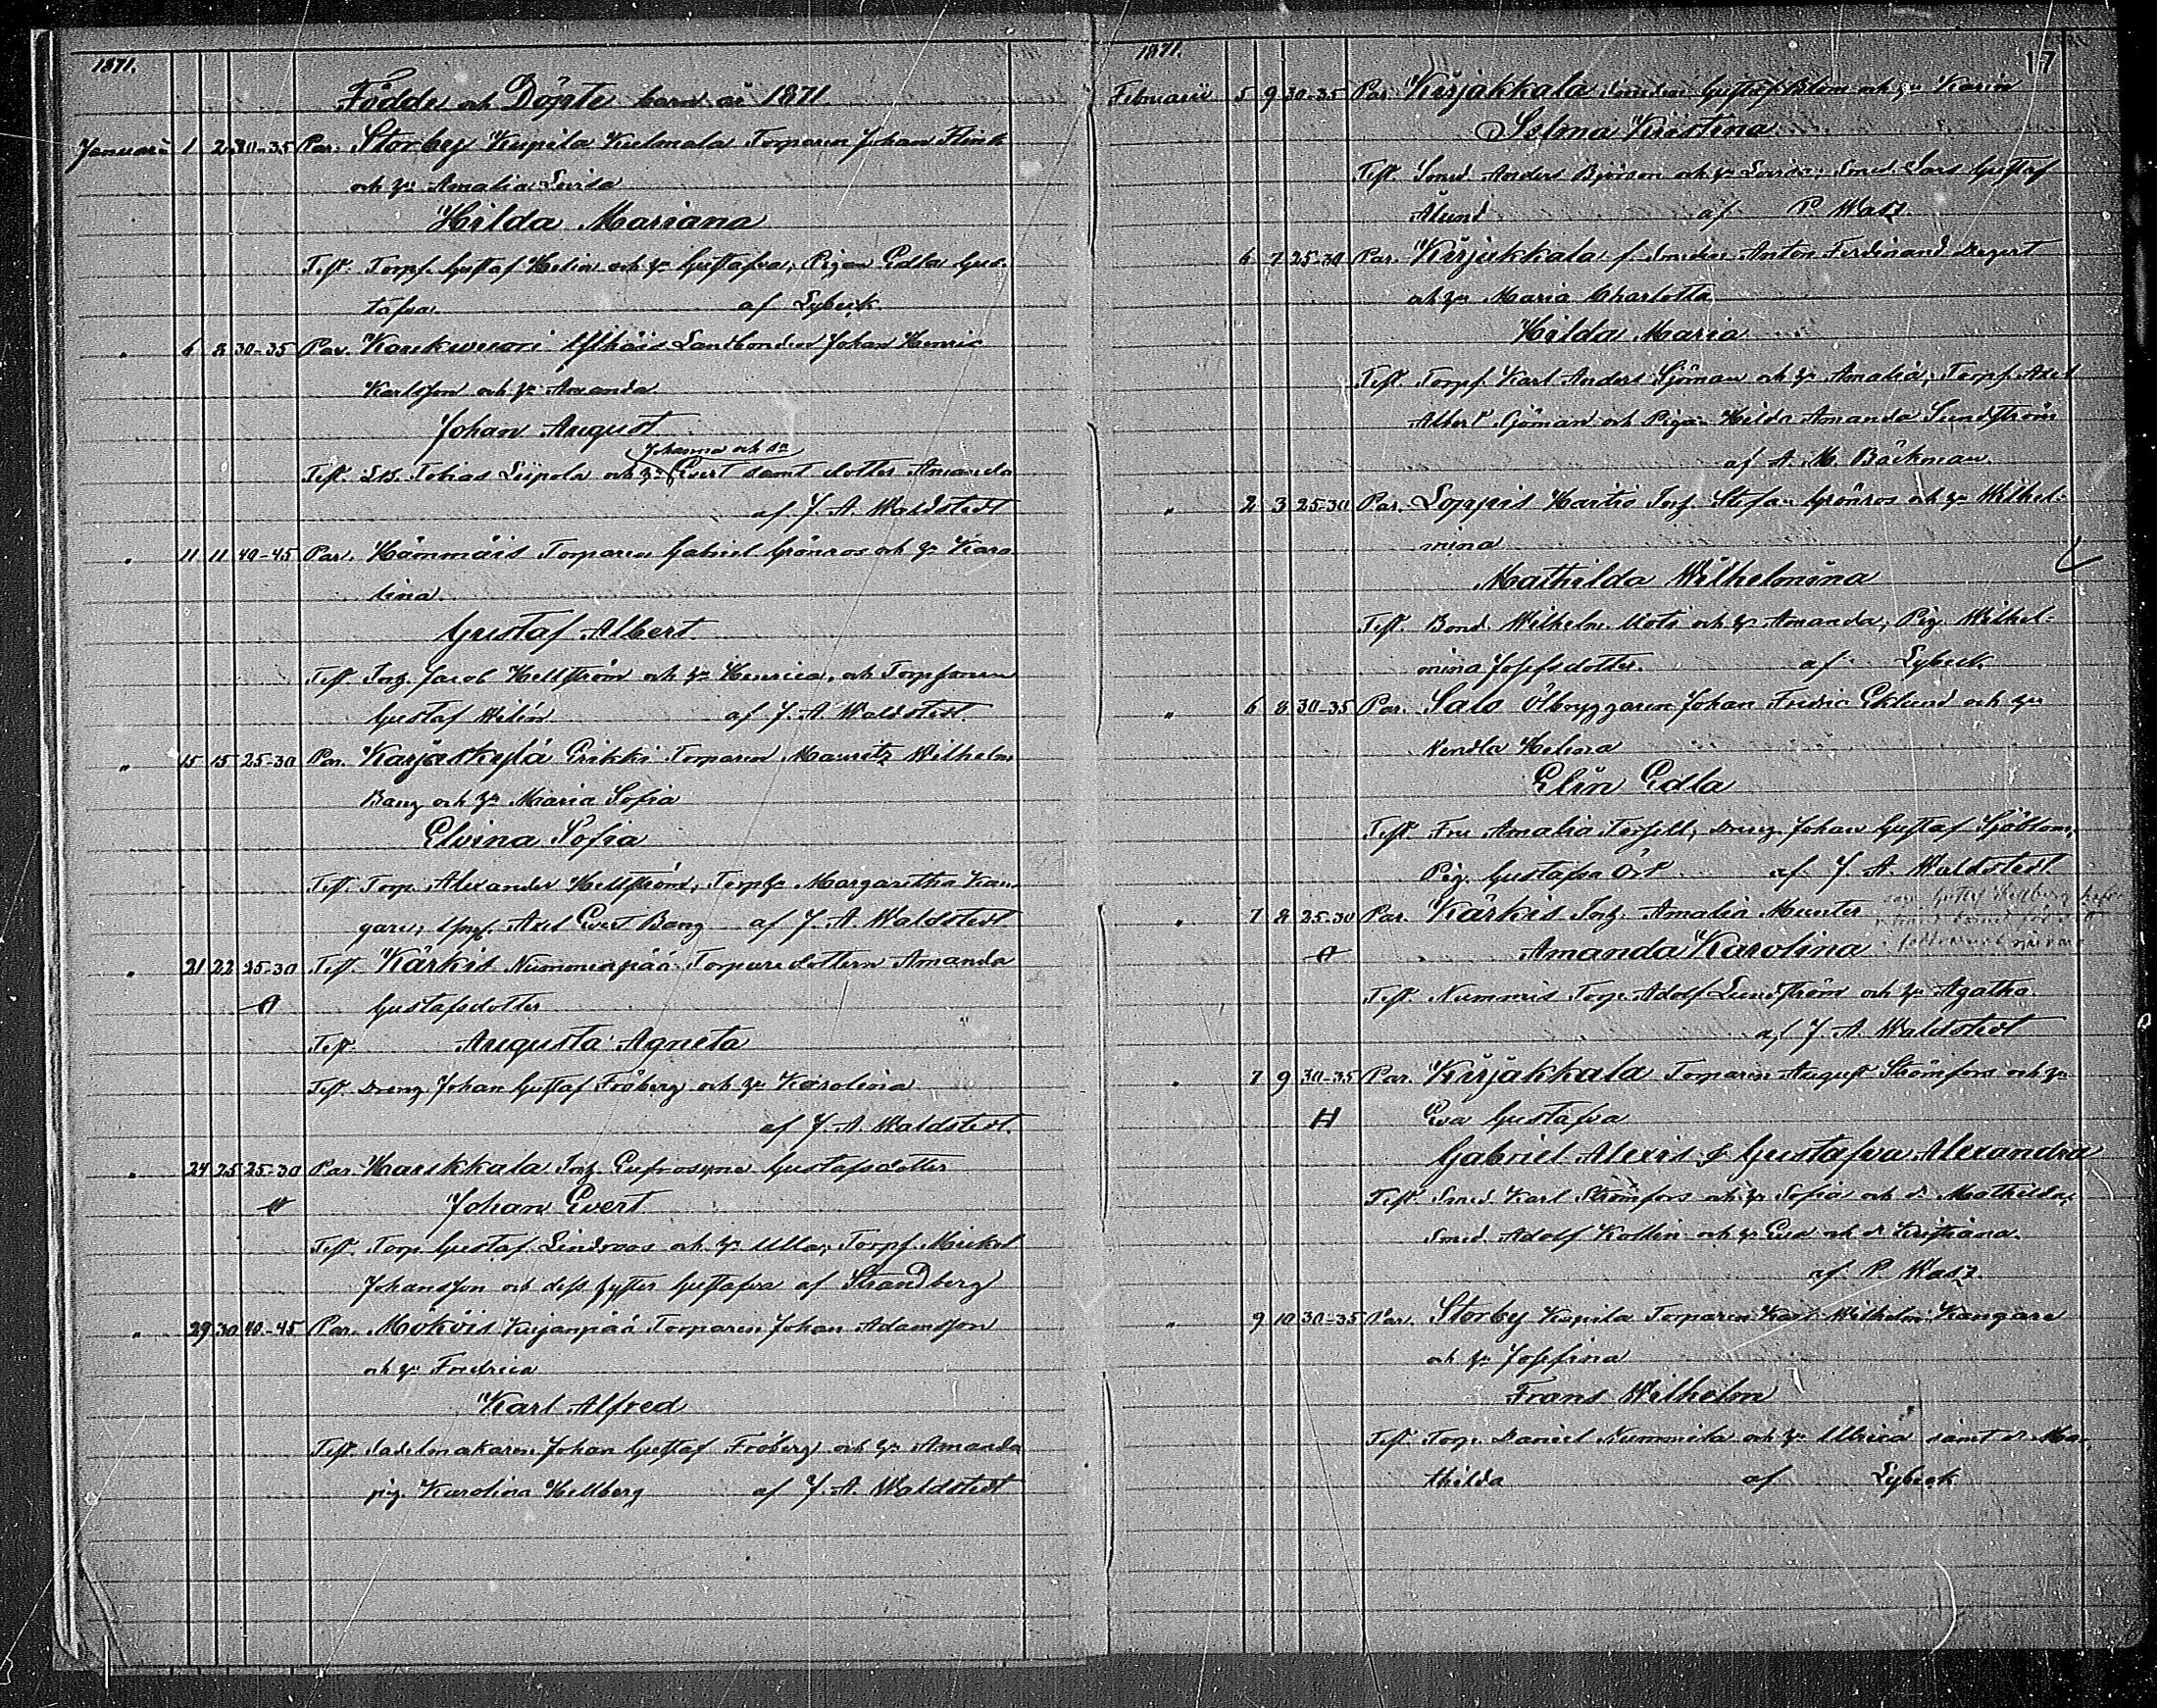 1871.
Födde och Döpte barn år 1871
Januarii 1 2 30-35 Par. Storby Kupila Kulmala Torparen Johan Flink
och h:u Amalia Lovisa
Hilda Mariana
Test. Torpf. Gustaf Helin och h:u Gustafva, Pigan Edla Gus-
tafva af Lybeck
" 6 8 30-35 Par. Landbonden Johan Henric
Karlsson och h:u Amanda
Johan August
Johanna och sn
Test. Lb. Tobias Leipola och h:u Evert samt dotter Amanda
af J. A. Waldstedt
" 11 11 40-45 Par. Hämmäis Torparen Gabriel Grönros och h:u Karo-
lina
Gustaf Albert
Test. Inh. Jacob Hellström och h:u Henrica, och Torpsonen
Gustaf af J. A. Waldstedt
" 15 15 25-30 Par. Karjaskylä Erikki Torparen Mauritz Wilhelm
Bang och h:u Maria Sofia
Elvina Sofia
Test. Torp. Alexander Hellström, Torph. Margaretha Kan-
gare, Axel Evert Bang af J. A. Waldstedt
" 21 22 25-30 Test. Kärkis Nummenpää Torparedottern Amanda
Gustafsdotter
Test. Augusta Agneta
Test. Dreng Johan Gustaf Fröberg och h:u Karolina
af J. A. Waldstedt.
" 24 25 25-30 Par. Haukkala Inh. Eufrosyne Gustafsdotter
Johan Evert
Test. Torp. Gustaf Lindroos och h:u Ulla, Torpf. Mickel
Johansson och dess syster Gustafva af Strandberg
" 29 30 40-45 Par. Mököis Kujanpää Torparen Johan Adamsson
och h:u Fredrica
Karl Alfred
Test. Sadelmakaren Johan Gustaf Fröberg och h:u Amanda
pig. Karolina Hellberg af J. A. Waldstedt
1871.
17
Februarii 5 9 30-35 Par. Kirjakkala Smeden Gustaf Blom och h:u Karin
Selma Kristina
Test. Smed. Anders Björson och h:u Lovisa, Smed. Lars Gustaf
Ålund af P. Wasz.
6 7 25-30 Par. Kirjakkala f. Smeden Anton Ferdinand Degert
och h:u Maria Charlotta
Hilda Maria
Test. Torpf. Karl Anders Sjöman och h:u Amalia, Torpf. Axel
Albert Sjöman och Pigan Hilda Amanda Sundström
af A. M. Bäckman.
" 2 3 25-30 Par. Loppis Hartio Inh. Stefan Grönros och h:u Wilhel-
mina
Mathilda Wilhelmina
Test. Bond. Wilhelm Uoti och h:u Amanda, Pig. Wilhel-
mina Josefsdotter. af Lybeck
" 6 8 30-35 Par. Salo Ölbryggaren Johan Fredric Eklund och h:u
Vendla Helena
Elin Edla
Test. Fru Amalia Forsell, Dreng Johan Gustaf Sjöblom,
Pig. Gustafva Öst af J. A. Waldstedt.
" 7 8 25-30 Par. Kärkis Inh. Amalia Munter
Amanda Karolina
Test. Nummis Torp. Adolf Lundström och h:u Agatha
af J. A. Waldstedt
" 7 9 30-35 Par. Kirjakkala Torparen August Strömfors och h:u
H Eva Gustafva
Gabriel Alexis & Gustafva Alexandra
Test. Smed. Karl Strömfors och h:u Sofia och d. Mathilda,
Smed. Adolf Kollin och h:u Eva och d. Kristiana.
af P. Wasz.
" 9 10 30-35 Par. Storby Kupila Torparen Karl Wilhelm Kangare
och h:u Josefina
Frans Wilhelm
Test. Torp. Daniel Nummila och h:u Ulrica samt d. Ma-
thilda af Lybeck